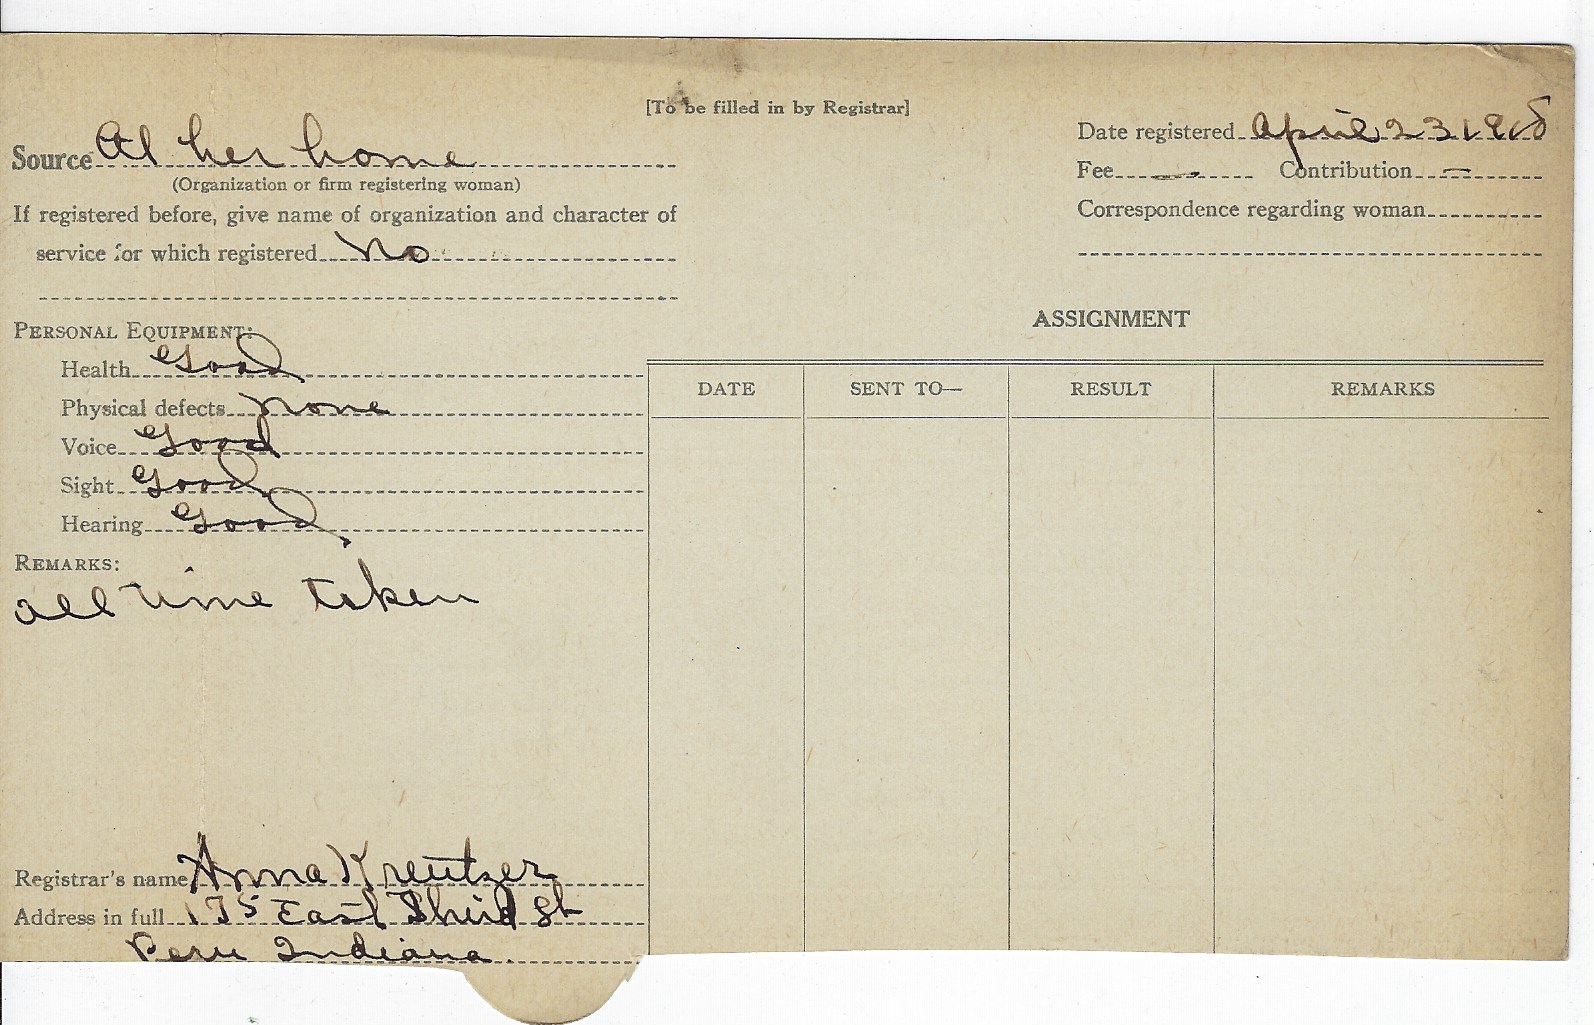 [To be filled in by Registrar]
Source At her home
(Organization or firm registering woman)
If registered before, give name of organization and character of
service for which registered No
Date registered April 23 1918
Fee — Contribution —
Correspondence regarding woman
PERSONAL EQUIPMENT:
Health Good
Physical defects none
Voice Good
Sight Good
Hearing Good
REMARKS:
all time taken
Registrar's name Anna Kreutzer
Address in full 175 East Third St
Peru Indiana.
ASSIGNMENT
DATE SENT TO— RESULT REMARKS